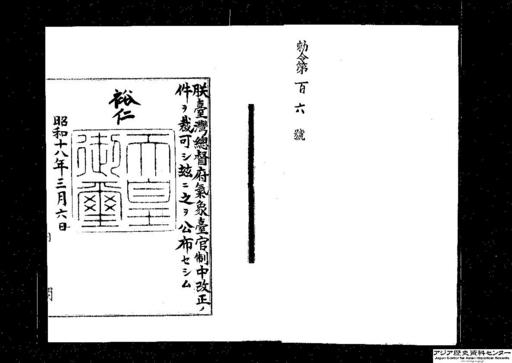 勅令第百六號
朕臺灣總督府氣象臺官制中改正ノ
件ヲ裁可シ玆ニ之ヲ公布セシム
裕仁
天皇御璽
昭和十八年三月六日
アジア歴史資料センター
Japan Center for Asian Historical Records